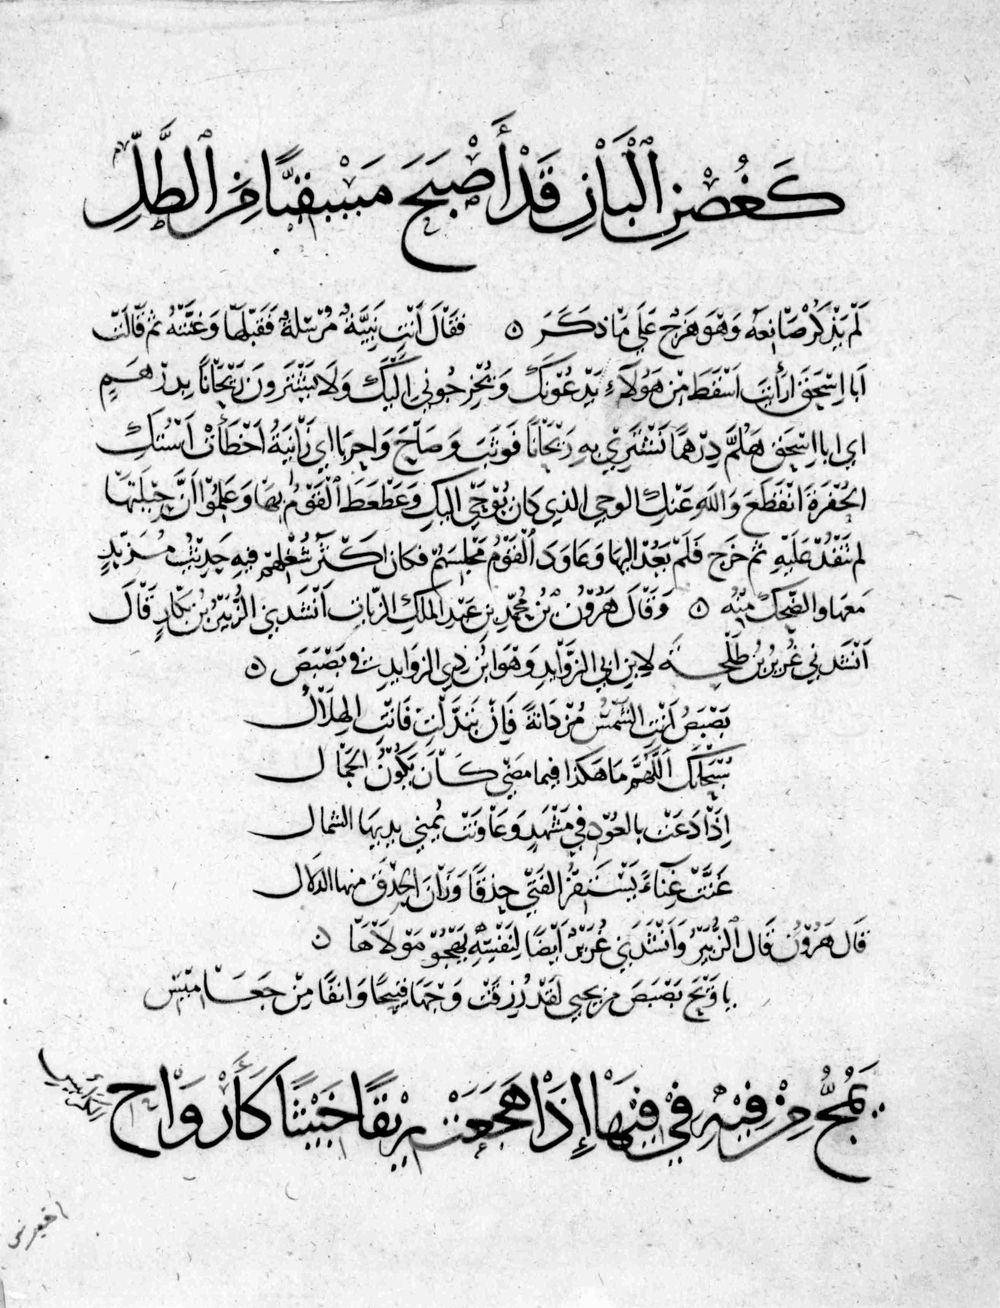 كَغُصْنِ الْبَانِ قَدْ أَصْبَحَ مَسْقِيًّا مِنَ الطَّلِّ
لم يذكر صانعه وهو هزج على ما ذكر ٥ فقال أنت نبيّة مرسلة فقبلها وغنته ثم قالت
ابا اسحق ارأيت اسقط من هؤلاء يدعونك ويخرجوني اليك ولا يشترون ريحانا بدرهم
اي ابا اسحق هلم درهما نشتري به ريحانا فوثب وصاح واحربا اي زانية اخطأت استك
الحفرة انقطع والله عنك الوحي الذي كان يوحى اليك وعطعط القوم بها وعلموا ان حيلتها
لم تنفذ عليه ثم خرج فلم يعد اليها وعاود القوم مجلسهم فكان اكثر شغلهم فيه حديث مزبد
معها والضحك منه ٥ وقال هرون بن محمد بن عبد الملك الزيات انشدني الزبير بن بكار قال
انشدني غرير بن طلحة لابن ابي الزوايد وهو ابن ذي الزوايد في بصبص ٥
بصبص انت الشمس مزدانة فان تبدلت فانت الهلال
سبحانك اللهم ما هكذا فيما مضى كان يكون الجمال
اذا دعت بالعود في مشهد وعاونت يمنى يديها الشمال
غنت غناء يستفز الفتى حذقا وزان الحذق منها الدلال
قال هرون قال الزبير وانشدني غرير ايضا لنفسه يهجو مولاها ٥
يا ويح بصبص من يحيى لقد رزقت وجها قبيحا وانفا من جعاميس
يمج من فيه في فيها إذا هجعت ريقا خبيثا كأرواح
الكرابيس